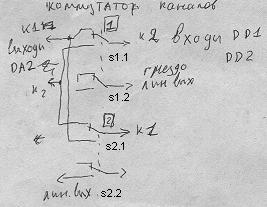 коммутатор каналов
К1
1
К2 входи DD1
выходи
DD2
DA2
s1.1
гнездо
К2
лин. вых
s1.2
2
К1
s2.1
лин. вых
s2.2